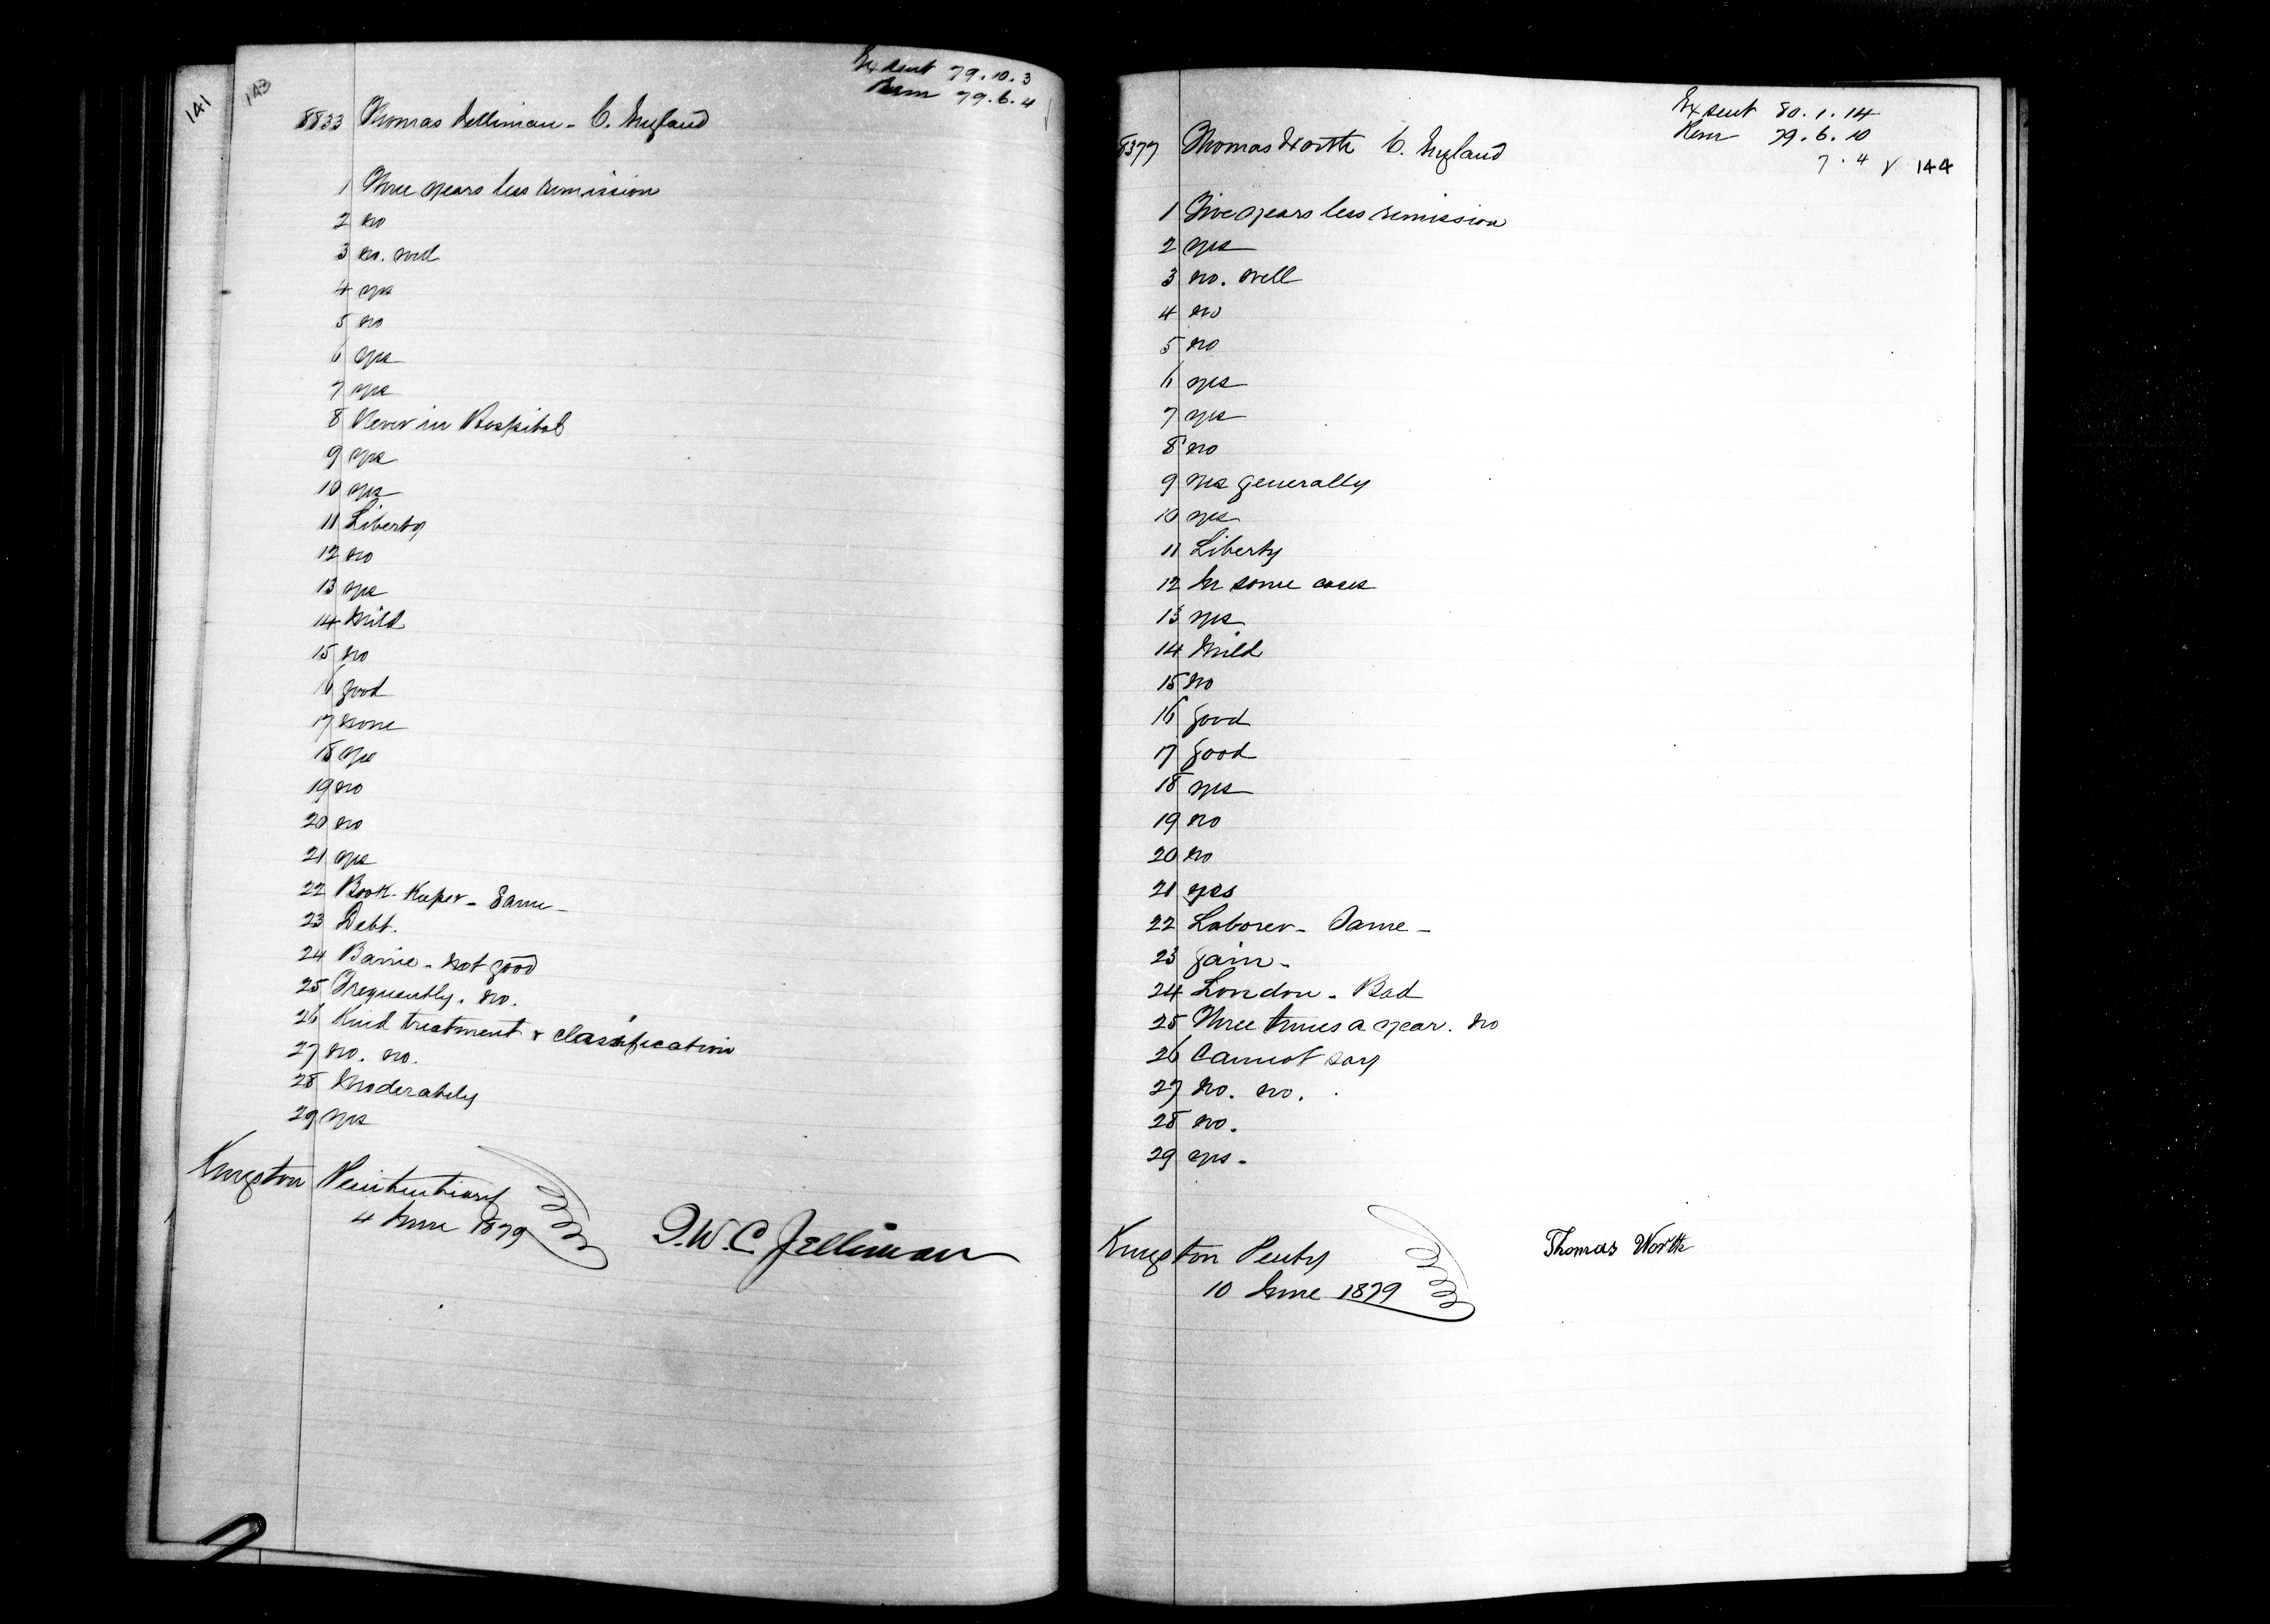 141
143
Ex sent 79.10.3
Rem 79.6.4
8833 Thomas Jelliman - C. England
1 Three years less remission
2 no
3 no. well
4 yes
5 no
6 yes
7 yes
8 Never in Hospital
9 yes
10 yes
11 Liberty
12 no
13 yes
14 Mild
15 no
16 good
17 none
18 yes
19 no
20 no
21 yes
22 Book-Keeper - Same -
23 Debt.
24 Barrie - not good
25 Frequently. no.
26 Kind treatment & classification
27 no. no.
28 Moderately
29 yes
Kingston Penitentiary
4 June 1879
T.W.C. Jelliman
Ex sent 80.1.14
Rem 79.6.10
7.4
144
8377 Thomas Worth C. England
1 Five years less remission
2 yes
3 no. well
4 no
5 no
6 yes
7 yes
8 no
9 yes generally
10 yes
11 Liberty
12 In some cases
13 yes
14 Mild
15 no
16 good
17 good
18 yes
19 no
20 no
21 yes
22 Laborer - Same -
23 gain -
24 London - Bad
25 Three times a year. no
26 Cannot say
27 no. no.
28 no.
29 yes -
Kingston Penty
10 June 1879
Thomas Worth